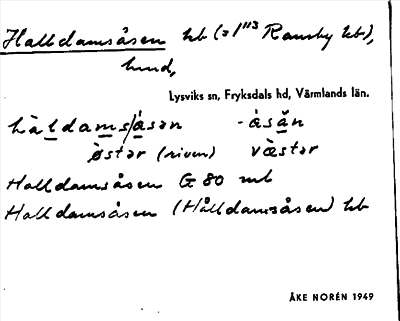 Halldamsåsen hb (=1¹¹³ Ransby hbr),
hmd,
Lysviks sn, Fryksdals hd, Värmlands län.
hàldams/åsən -åsăn
östər (riven) vàstər
Halldamsåsen G 80 mb
Halldamsåsen (Hålldamsåsen) hb
ÅKE NORÉN 1949